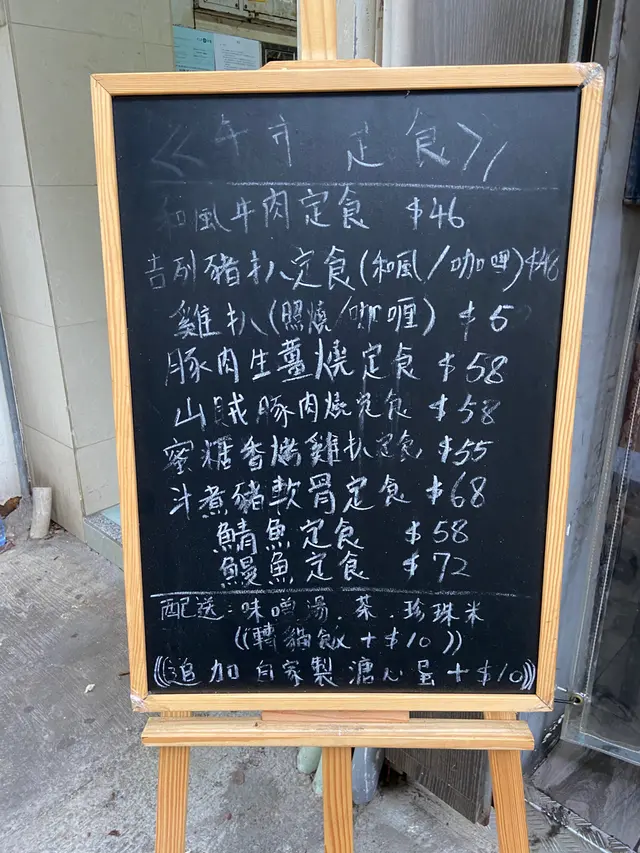 <<午市定食>>
和風牛肉定食 $46
吉列豬扒定食(和風/咖喱)$46
雞扒(照燒/咖喱) $5
豚肉生薑燒定食 $58
山賊豚肉燒定食 $58
蜜糖香烤雞扒定食 $55
汁煮豬軟骨定食 $68
鯖魚定食 $58
鰻魚定食 $72
配送:味噌湯.菜.珍珠米
((轉貓飯 + $10))
((追加自家製溏心蛋 + $10))